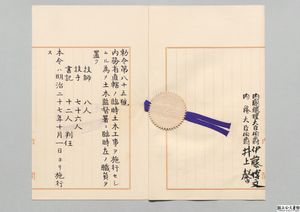 内閣総理大臣伯爵伊藤博文
内務大臣伯爵井上馨
勅令第八十五號
内務省直轄ノ臨時土木工事ヲ施行セシ
ムル為メ土木監督署ニ臨時左ノ職員ヲ
置ク
技師 八人
技手 七十六人
書記 十二人 判任
本令ハ明治二十七年十月一日ヨリ施行
ス
国立公文書館